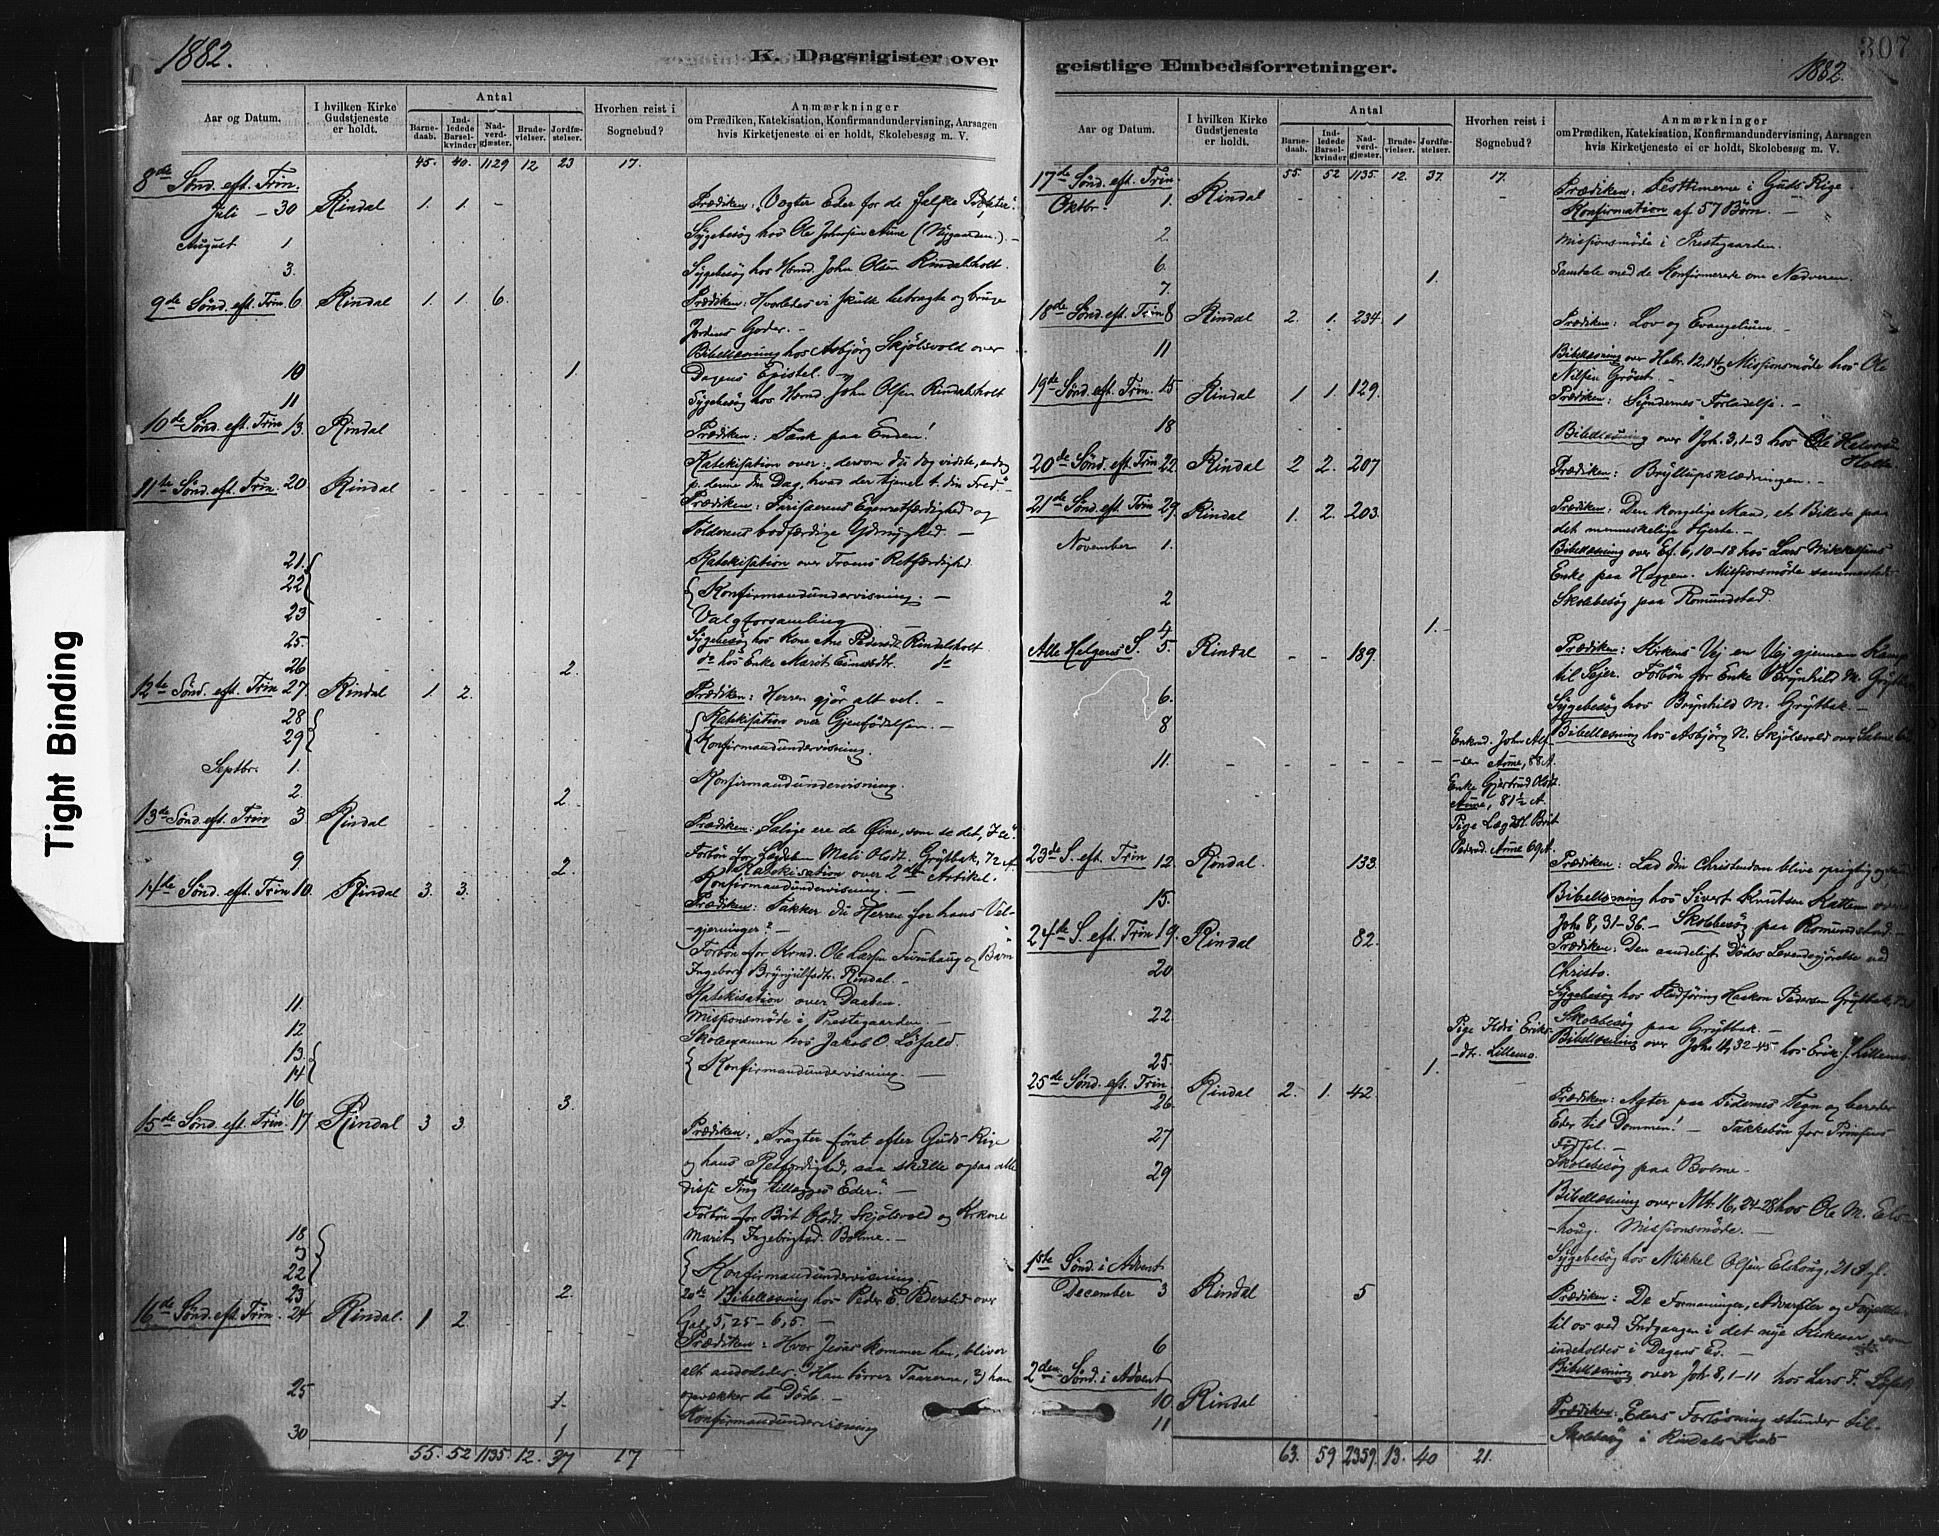 1882.
K. Dagsrigister over
Aar og Datum.
I hvilken Kirke Gudstjeneste er holdt.
Antal
Barnedaab.
Indledede Barselkvinder
Nadverdgjæster.
Brudevielser.
Jordfæstelser.
Hvorhen reist i Sognebud?
Anmærkninger
om Prædiken, Katekisation, Konfirmandundervisning, Aarsagen
hvis Kirketjeneste ei er holdt, Skolebesøg m. V.
45. 40. 1129 12 23 17.
8de Sønd. eft. Trin.
Juli - 30 Rindal 1. 1. - Prædiken: "Vogter Eder for de falske Profeter".
August 1 Sygebesøg hos Ole Johnsen Aune (Nygaarden). -
3. Sygebesøg hos Hmd. John Olsen Rindalsholt.
9de Sønd. eft. Trin. 6. Rindal 1. 1. 6. Prædiken: Hvorledes vi skulle betragte og bruge
Jordens Goder. -
Bibellæsning hos Asbjørg Skjølsvold over
10 1. Dagens Epistel. -
11 Sygebesøg hos Hmd. John Olsen Rindalsholt
10de Sønd. eft. Trin 13. Rindal Prædiken: Tænk paa Enden!
Katekisation over: "dersom du dog vidste, endog
11te Sønd. eft. Trin. 20 Rindal p. denne din Dag, hvad der tjener t. din Fred." -
Prædiken: Farisæerens Egenretfærdighed og
Tolderens bodfærdige Ydmyghed. -
21. Katekisation over Troens Retfærdighed
22 Konfirmandundervisning. -
23 Valgforsamling
25 Sygebesøg hos Kone Ane Pedersdt. Rindalsholt
26 2. do hos Enke Marit do
12te Sønd. eft. Trin 27. Rindal 1. 2. Prædiken: Herren gjør alt vel. -
28 Katekisation over Gjenfødelsen. -
29 Konfirmandundervisning.
Septbr. 1. Konfirmandundervisning.
2. 2.
13de Sønd. eft. Trin 3 Rindal Prædiken: "Salige ere de Øine, som se det, I se".
Forbøn for Mali Olsdt. Grytbak, 72 A.
9 2. Katekisation over 2den Artikel.
Konfirmandundervisning. -
14de Sønd. eft. Trin 10. Rindal 3. 3. Prædiken: Takker du Herren for hans Vel-
-gjerninger? -
Forbøn for Kmd. Ole Larsen og Barn
Ingeborg Brynjulfsdtr. Rindal. -
Katekisation over Daaben.
11. Missionsmøde i Prestegaarden. -
12 Skoleexamen hos Jakob O. Løfald.
13. Konfirmandundervisning. -
14
16 3.
15de Sønd. eft. Trin. 17 Rindal 3 3. Prædiken: "Tragter først efter Guds Rige
og hans Retfærdighed, saa skulle ogsaa alle
disse Ting tillægges Eder". -
Forbøn for Brit Olsdt. Skjølsvold og
Marit Ingebrigtsd. Bolme. -
18
22 Konfirmandundervisning.
23 2. 20de Bibellæsning hos Peder E. over
16de Sønd. eft. Trin. 24 Rindal. 1 2. Gal. 5, 25 - 6, 5. -
Prædiken: Hvor Jesus kommer hen, bliver
alt anderledes: Han tørrer Taarerne, han
25 1. opvækker de Døde. -
Konfirmandundervisning
30 1
55. 52 1135. 12. 37 17
307
1882.
geistlige Embedsforretninger.
Aar og Datum.
I hvilken Kirke Gudstjeneste er holdt.
Antal
Barnedaab.
Indledede Barselkvinder
Nadverdgjæster.
Brudevielser.
Jordfæstelser.
Hvorhen reist i Sognebud?
Anmærkninger
om Prædiken, Katekisation, Konfirmandundervisning, Aarsagen
hvis Kirketjeneste ei er holdt, Skolebesøg m. V.
55. 52 1135. 12. 37. 17.
17de Sønd. eft. Trin. Prædiken: i Guds Rige.
Oktbr. 1. Rindal Konfirmation af 57 Børn. -
2. Missionsmøde i Prestegaarden.
6. 1. Samtale med de Konfirmerede om Nadveren.
7.
18de Sønd. eft. Trin 8 Rindal 2. 1. 234. 1 Prædiken: Lov og Evangelium. -
11 Bibellæsning over Hebr. 12, 14. Missionsmøde hos Ole
Nilsen Grøset. -
19de Sønd. eft. Trin. 15 Rindal 1 1. 129. Prædiken: Syndernes Forladelse. -
18 Bibellæsning over Joh. 3, 1-3 hos Ole Halvorsen
Holte.
20de Sønd. eft. Trin 22 Rindal 2 2. 207 Prædiken: Bryllupsklædningen. -
21de Sønd. eft. Trin 29. Rindal 1. 2. 203. Prædiken: Den kongelige Mand, et Billede paa
det menneskelige Hjerte. -
November 1. Bibellæsning over Ef. 6, 10-18 hos Lars Mikkelsens
Enke paa Heggem. Missionsmøde sammesteds.
2 Skolebesøg paa Romundstad.
4 1.
Alle Helgens S. 5. Rindal - - 189. Prædiken: Kirkens Vej en Vej gjennem Kamp
til Sejer. Forbøn for Enke Brynhild M. Grytbak
6. Sygebesøg hos Brynhild M. Grytbak. -
8 Bibellæsning hos Asbjørg N. Skjølsvold over Salme
11. Enkmd. John Alf-
sen Aune, 88 A.
Enke Gjertrud Olsdt.
Aune, 81½ A.
Pige Lægdsl. Brit
Pedersd. Aune 69 A.
23de S. eft. Trin 12 Rindal. 133 Prædiken: Lad din Christendom blive oprigtig og sand
15. Bibellæsning hos Sivert Knutsen Hatten over
Joh. 8, 31-36. - Skolebesøg paa Romundstad. -
24de S. eft. Trin 19. Rindal 82. Prædiken: Den aandeligt Dødes Levendegjørelse ved
Christo.
20 Sygebesøg hos Flødføring Haakon Pedersen Grytbak,
22. Skolebesøg paa Grytbak. -
Pige Ildri Eriks-
-dt. Lillemo. Bibellæsning over Joh. 11, 32-45 hos Erik J. Lillemo
25. 1.
25de Sønd. eft. Trin.
26. Rindal 2. 1. 42. Prædiken: Agter paa Tidernes Tegn og bereder
Eder til Dommen! - Takkebøn for Prinsens
Fødsel. -
27 Skolebesøg paa Bolme. -
29 Bibellæsning over Mt. 16, 24-28 hos Ole M. Els-
-houg. Missionsmøde. -
Sygebesøg hos Mikkel Olsen Elshoug, 21 A. gl.
1ste Sønd. i Advent
December 3 Rindal 5 Prædiken: De Formaninger, Advarsler og Forjættelser
til os ved Indgangen i det nye Kirkeaar, som
indeholdes i Dagens Ev. -
6 Bibellæsning over Joh. 8, 1-11 hos Lars F. Løfald.
2den Sønd. i Advent
10 Rindal Prædiken: "Eders Forløsning stunder til.
11 Skolebesøg i Rindals
63. 59 2359. 13. 40 21.
Tight Binding